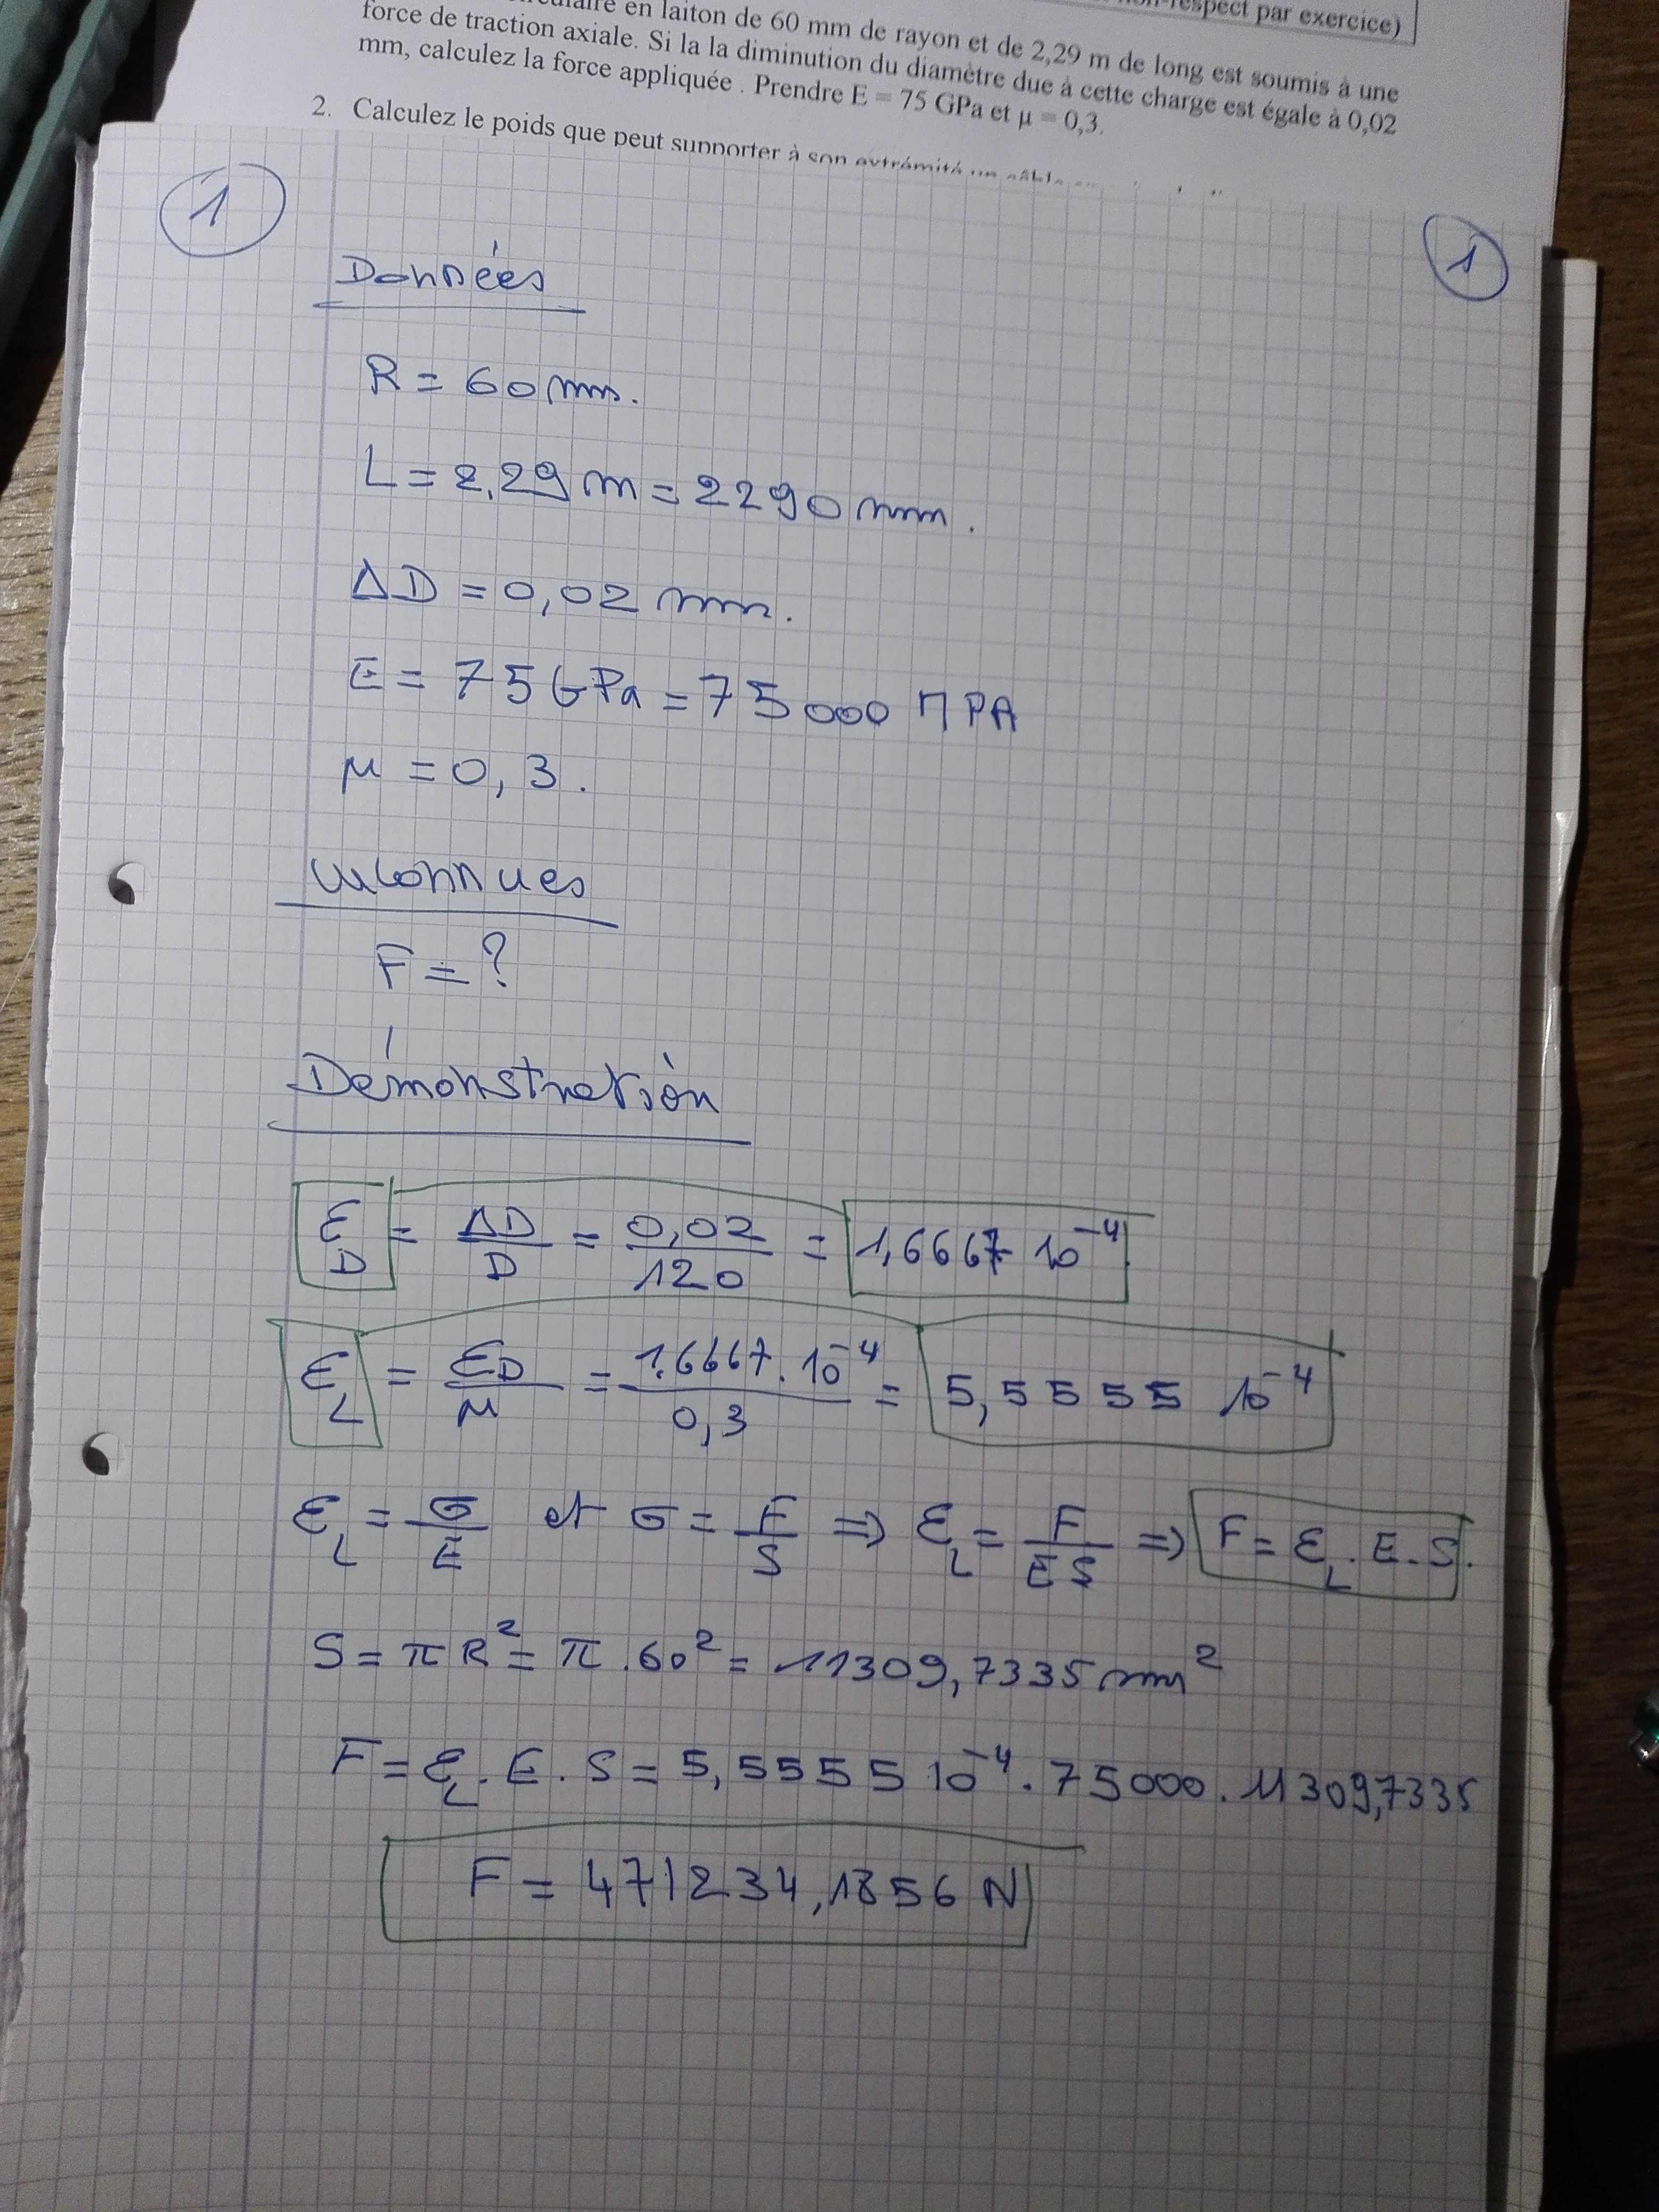 respect par exercice)
en laiton de 60 mm de rayon et de 2,29 m de long est soumis à une
force de traction axiale. Si la la diminution du diamètre due à cette charge est égale à 0,02
mm, calculez la force appliquée . Prendre E = 75 GPa et μ = 0,3.
2. Calculez le poids que peut supporter à son extrémité un câble
1
1
Données
R = 60 mm.
L = 2,29 m = 2290 mm.
ΔD = 0,02 mm.
E = 75 GPa = 75000 MPA
μ = 0,3.
Inconnues
F = ?
Démonstration
ε_D = ΔD/D = 0,02/120 = 1,6667 10^-4
ε_L = ε_D/μ = 1,6667 . 10^-4/0,3 = 5,5555 10^-4
ε_L = σ/E et σ = F/S => ε_L = F/ES => F = ε_L . E . S.
S = π R² = π . 60² = 11309,7335 mm²
F = ε_L . E . S = 5,5555 10^-4 . 75000 . 11309,7335
F = 471234,1856 N